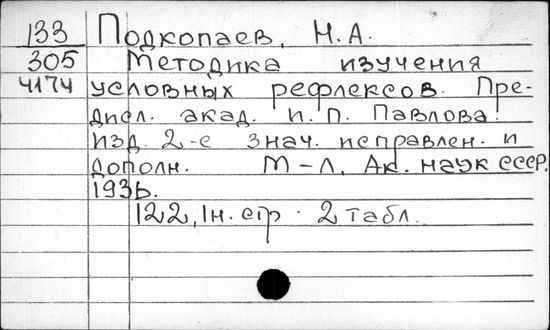 133 Подкопаев, Н.А.
305 Методика изучения
4174 условных рефлексов. Пре-
дисл. акад. И. П. Павлова.
Изд. 2-е знач. исправлен. и
дополн. М-Л, Ак. наук СССР,
1936.
122, 1н. стр. 2 табл.